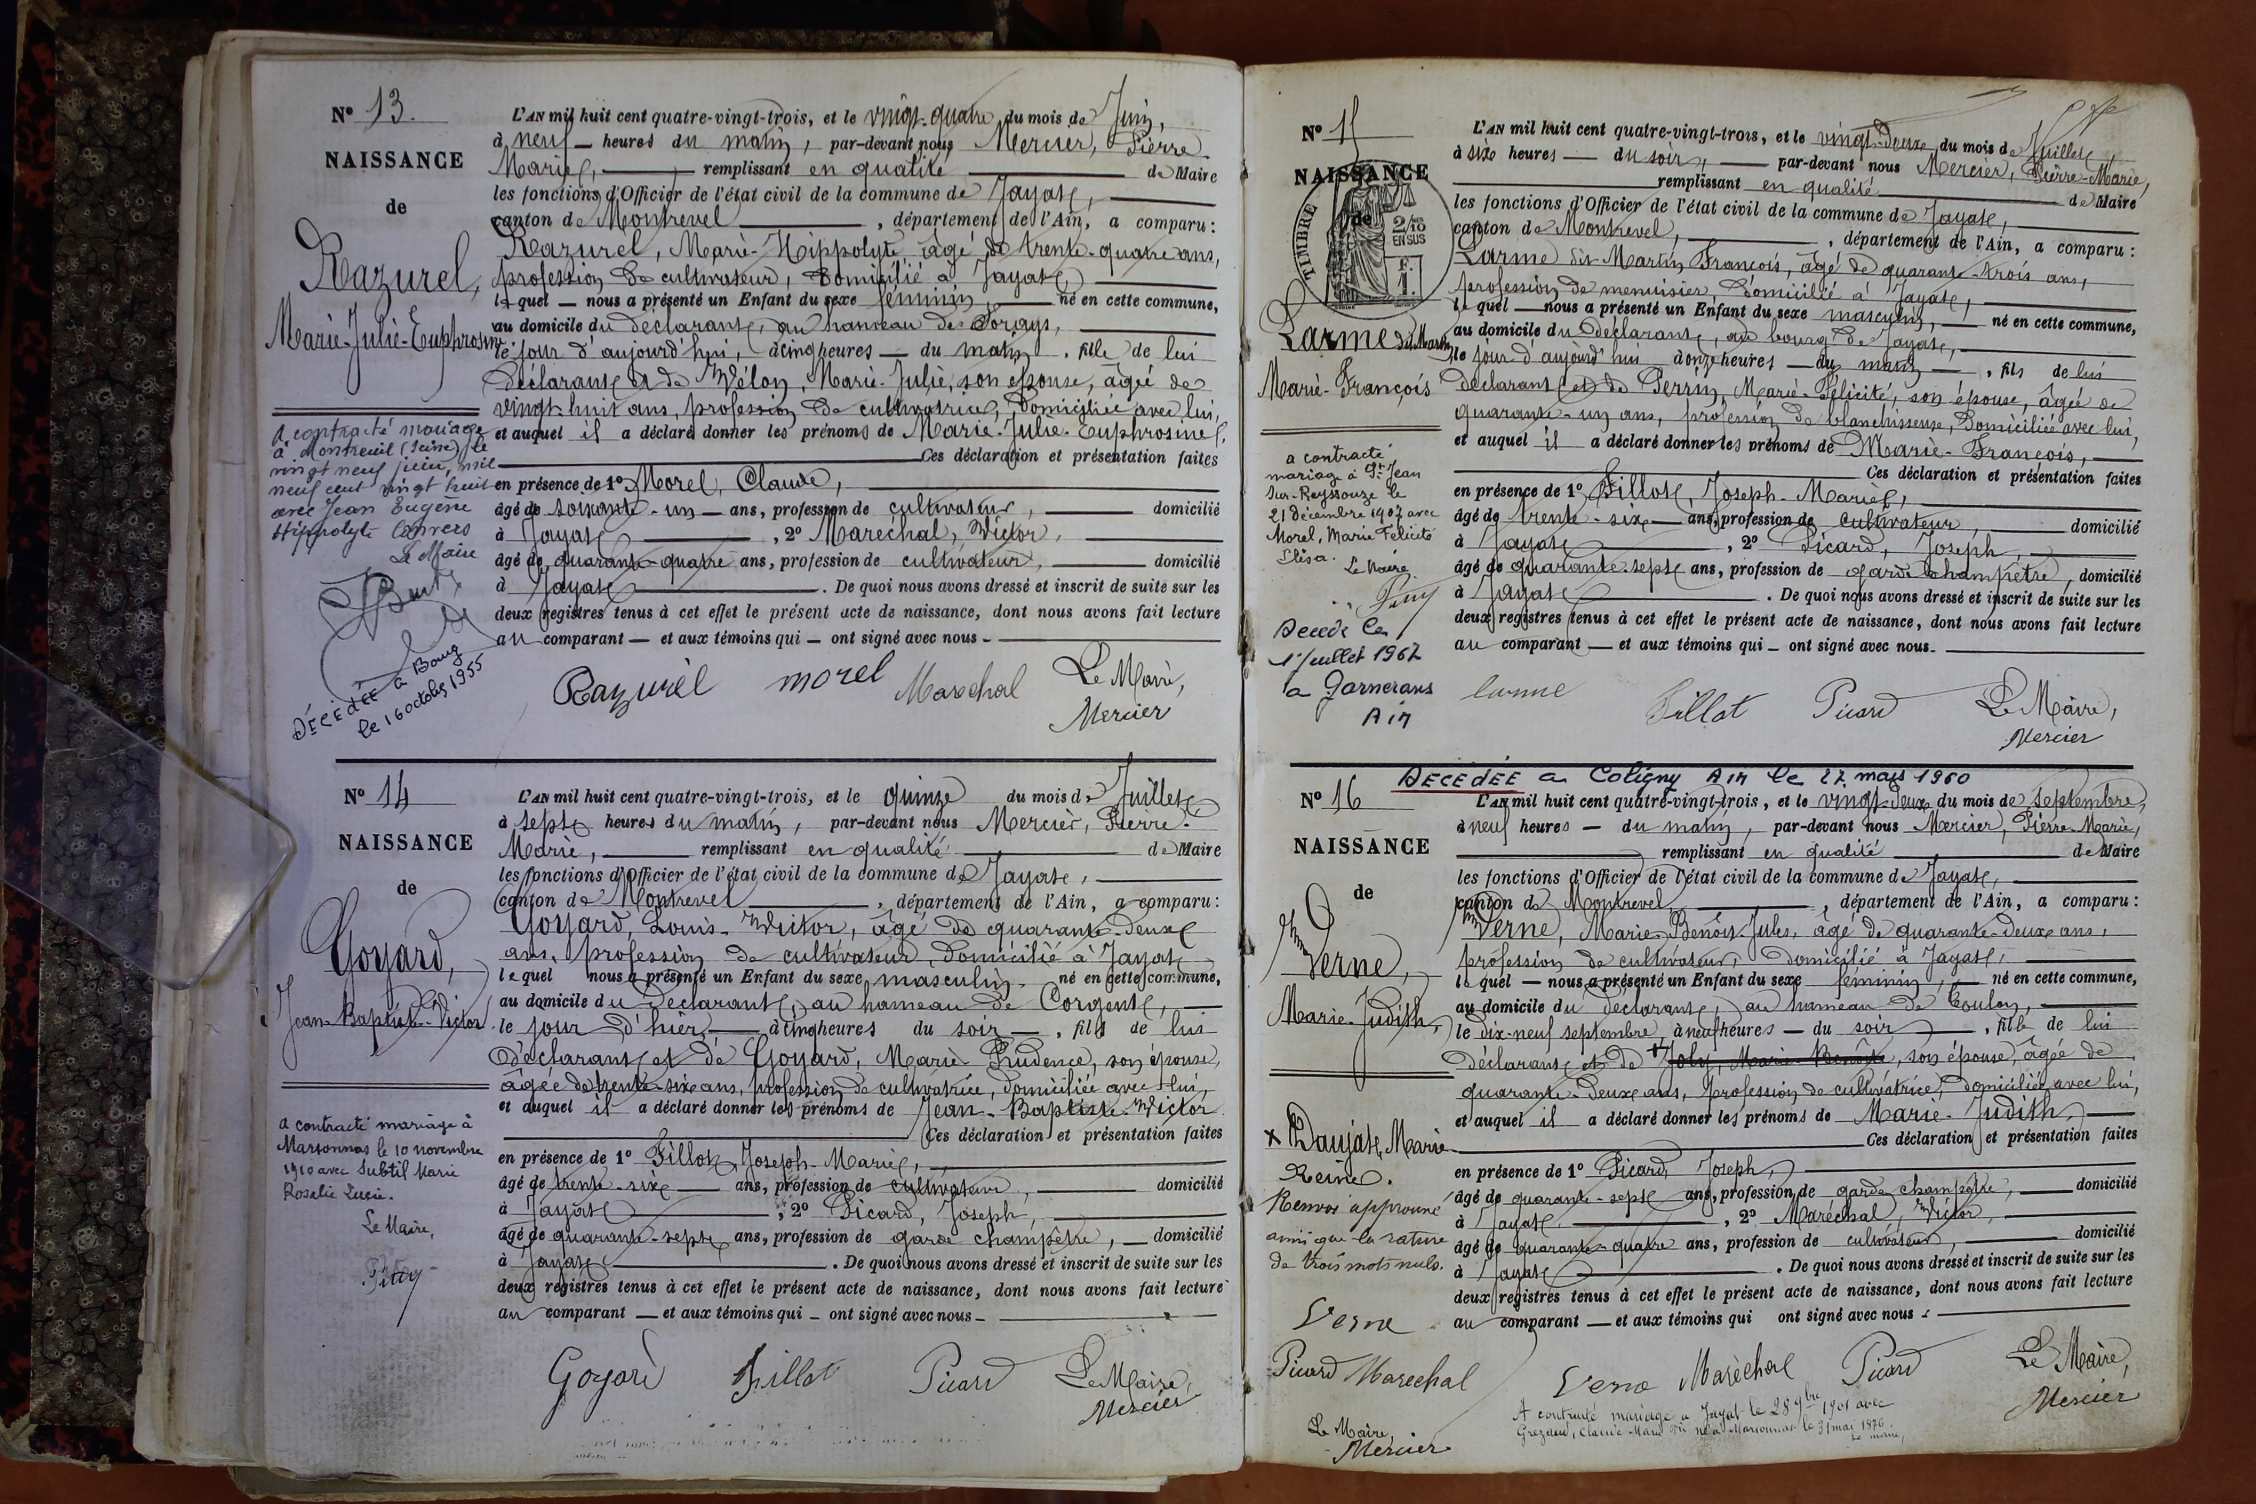 N° 13.
NAISSANCE
de
Razurel,
Marie-Julie-Euphrosine
a contracté mariage
à Montreuil (Seine) le
vingt neuf juin, mil
neuf cent vingt huit
avec Jean Eugène
Hippolyte
Le Maire
DÉCÉDÉE à Bourg
le 16 octobre 1955
L'AN mil huit cent quatre-vingt-trois, et le vingt-quatre du mois de Juin,
à neuf — heures du matin, par-devant nous Mercier, Pierre-
Marie, remplissant en qualité de Maire
les fonctions d'Officier de l'état civil de la commune de Jayat,
canton de Montrevel, département de l'Ain, a comparu :
Razurel, Marie-Hippolyte, âgé de trente-quatre ans,
profession de cultivateur, domicilié à Jayat,
lequel — nous a présenté un Enfant du sexe féminin, né en cette commune,
au domicile du déclarant, au hameau des
le jour d'aujourd'hui, à cinq heures — du matin, fille de lui
déclarant et de Vélon, Marie-Julie, son épouse, âgée de
vingt-huit ans, profession de cultivatrice, domiciliée avec lui,
et auquel il a déclaré donner les prénoms de Marie-Julie-Euphrosine.
Ces déclaration et présentation faites
en présence de 1° Morel, Claude,
âgé de soixante-un — ans, profession de cultivateur, domicilié
à Jayat, 2° Maréchal, Victor,
âgé de quarante-quatre ans, profession de cultivateur, domicilié
à Jayat. De quoi nous avons dressé et inscrit de suite sur les
deux registres tenus à cet effet le présent acte de naissance, dont nous avons fait lecture
au comparant — et aux témoins qui — ont signé avec nous —
Razurel morel Marechal Le Maire,
Mercier
N° 14
NAISSANCE
de
Goyard,
Jean-Baptiste-Victor
a contracté mariage à
Marsonnas le 10 novembre
1910 avec Subtil Marie
Rosalie Lucie.
Le Maire,
L'AN mil huit cent quatre-vingt-trois, et le quinze du mois de Juillet
à sept heures du matin, par-devant nous Mercier, Pierre-
Marie, remplissant en qualité de Maire
les fonctions d'Officier de l'état civil de la commune de Jayat,
canton de Montrevel, département de l'Ain, a comparu :
Goyard, Louis-Victor, âgé de quarante-deux
ans, profession de cultivateur, domicilié à Jayat
lequel nous a présenté un Enfant du sexe masculin né en cette commune,
au domicile du déclarant, au hameau de Corgent,
le jour d'hier, à cinq heures du soir —, fils de lui
déclarant et de Goyard, Marie-Prudence, son épouse,
âgée de trente-six ans, profession de cultivatrice, domiciliée avec lui,
et auquel il a déclaré donner les prénoms de Jean-Baptiste-Victor
Ces déclaration et présentation faites
en présence de 1° Fillot, Joseph-Marie,
âgé de trente-six — ans, profession de cultivateur, domicilié
à Jayat, 2° Picard, Joseph,
âgé de quarante-sept ans, profession de garde champêtre, domicilié
à Jayat. De quoi nous avons dressé et inscrit de suite sur les
deux registres tenus à cet effet le présent acte de naissance, dont nous avons fait lecture
au comparant — et aux témoins qui — ont signé avec nous —
Goyard Fillot Picard Le Maire,
Mercier
N° 15
NAISSANCE
de
TIMBRE
2/10
EN SUS
F.
1.
Larme dit Martin
Marie-François
a contracté
mariage à St Jean
sur-Reyssouze le
21 décembre 1907 avec
Morel, Marie Félicité
Le Maire
Décédé le
1 juillet 1967
a Garnerans
Ain
L'AN mil huit cent quatre-vingt-trois, et le vingt-deux du mois de Juillet,
à six heures — du soir, par-devant nous Mercier, Pierre-Marie,
remplissant en qualité de Maire
les fonctions d'Officier de l'état civil de la commune de Jayat,
canton de Montrevel, département de l'Ain, a comparu :
Larme dit Martin François, âgé de quarante-trois ans,
profession de menuisier, domicilié à Jayat,
lequel — nous a présenté un Enfant du sexe masculin, né en cette commune,
au domicile du déclarant, au bourg de Jayat,
le jour d'aujourd'hui à onze heures — du matin —, fils de lui
déclarant et de Perrin, Marie-Félicité, son épouse, âgée de
quarante-un ans, profession de blanchisseuse, domiciliée avec lui,
et auquel il a déclaré donner les prénoms de Marie-François,
Ces déclaration et présentation faites
en présence de 1° Fillot, Joseph-Marie,
âgé de trente-six — ans, profession de cultivateur, domicilié
à Jayat, 2° Picard, Joseph,
âgé de quarante-sept ans, profession de garde champêtre, domicilié
à Jayat. De quoi nous avons dressé et inscrit de suite sur les
deux registres tenus à cet effet le présent acte de naissance, dont nous avons fait lecture
au comparant — et aux témoins qui — ont signé avec nous.
larme Fillot Picard Le Maire,
Mercier
DÉCÉDÉE a Coligny Ain le 27 mars 1960
N° 16
NAISSANCE
de
Verne,
Marie-Judith,
x Daujat, Marie
Reine.
Renvoi approuvé
ainsi que la rature
de trois mots nuls.
Verne
Picard Marechal
Le Maire,
Mercier
L'AN mil huit cent quatre-vingt-trois, et le vingt-deux du mois de septembre,
à neuf heures — du matin, par-devant nous Mercier, Pierre-Marie,
remplissant en qualité de Maire
les fonctions d'Officier de l'état civil de la commune de Jayat,
canton de Montrevel, département de l'Ain, a comparu :
Verne, Marie-Benoît-Jules, âgé de quarante-deux ans,
profession de cultivateur, domicilié à Jayat,
lequel — nous a présenté un Enfant du sexe féminin, né en cette commune,
au domicile du déclarant, au hameau de Coulon,
le dix-neuf septembre à neuf heures — du soir, fille de lui
déclarant et de x Joly, Marie-Benoîte, son épouse, âgée de
quarante-deux ans, profession de cultivatrice, domiciliée avec lui,
et auquel il a déclaré donner les prénoms de Marie-Judith,
Ces déclaration et présentation faites
en présence de 1° Picard, Joseph,
âgé de quarante-sept ans, profession de garde champêtre, domicilié
à Jayat, 2° Maréchal, Victor,
âgé de quarante-quatre ans, profession de cultivateur, domicilié
à Jayat. De quoi nous avons dressé et inscrit de suite sur les
deux registres tenus à cet effet le présent acte de naissance, dont nous avons fait lecture
au comparant — et aux témoins qui ont signé avec nous.
Verne Maréchal Picard Le Maire,
Mercier
A contracté mariage a Jayat le 28 9bre 1901 avec
Claude-Marie né à Marsonnas le 31 mai 1876.
Le maire,